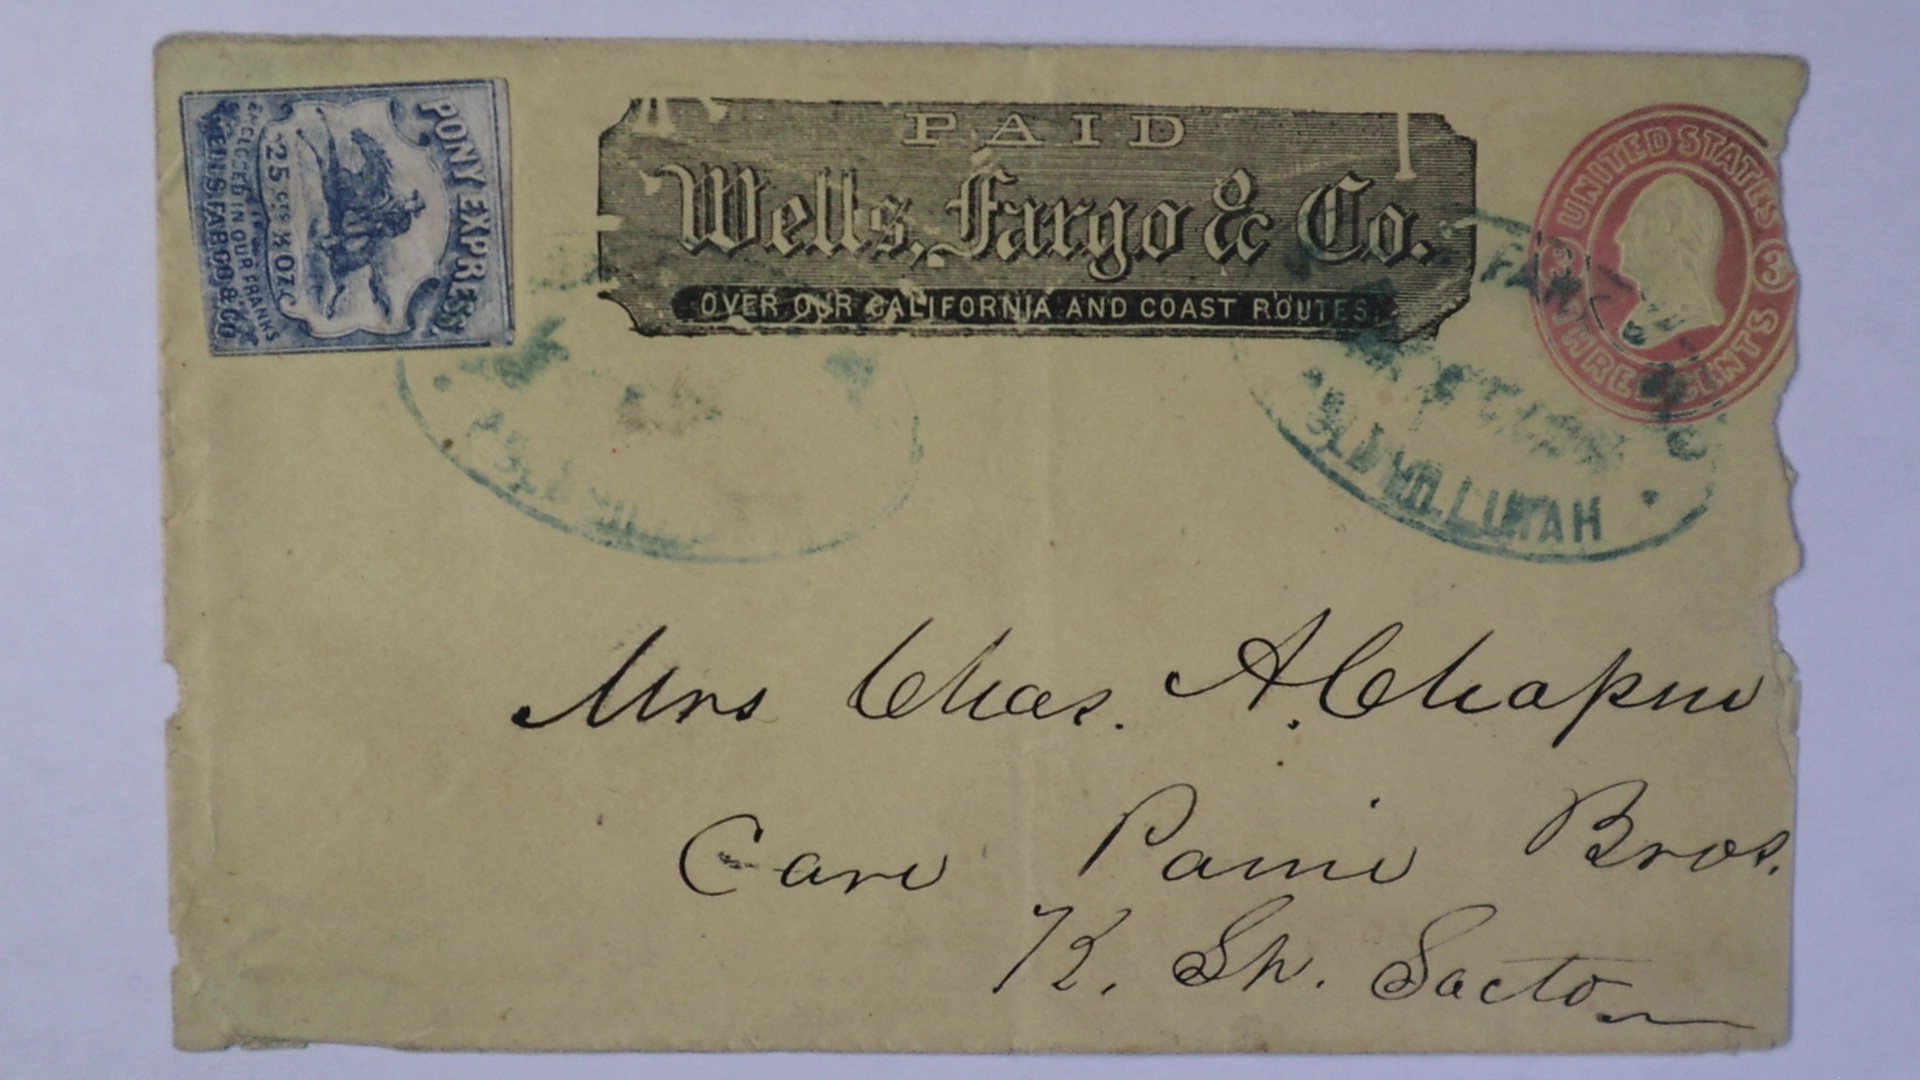 PONY EXPRESS
25 CTS ½ OZ
ENCLOSED IN OUR FRANKS
WELLS FARGO & CO
PAID
Wells, Fargo & Co.
OVER OUR CALIFORNIA AND COAST ROUTES.
UNITED STATES
3 3
THREE CENTS
UTAH
Mrs Chas. A. Chapin
Care Paine Bros.
K. St. Sacto